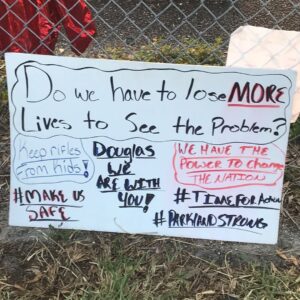 Do we have to lose MORE
Lives to See the Problem?
Keep rifles
From Kids!
#MAKE US
SAFE
Douglas
WE
ARE WITH
YOU!
WE HAVE THE
POWER TO Change
THE NATION
#TIME FOR Action
#PARKLANDSTRONG